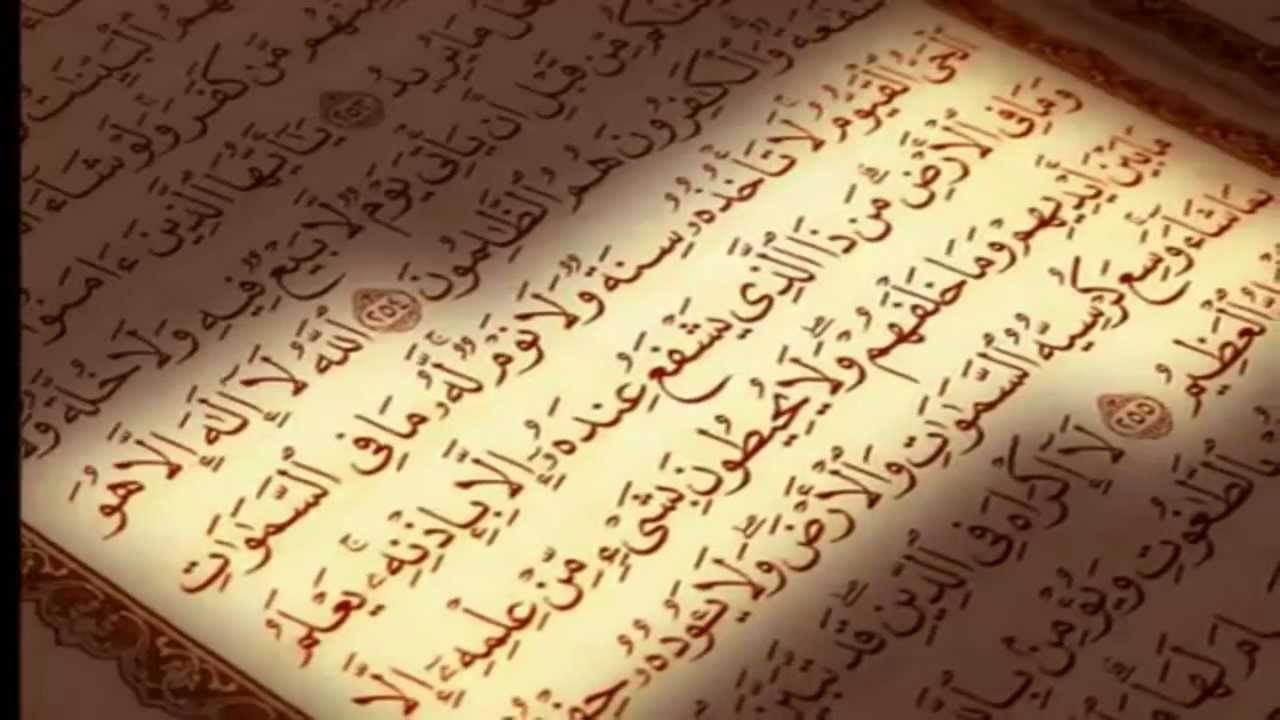 هُمُ ٱلْبَيِّنَٰتُ
مِنْهُم مَّن كَفَرَ وَلَوْ شَآءَ
مَا يُرِيدُ ٢٥٣ يَٰٓأَيُّهَا ٱلَّذِينَ ءَامَنُوٓا۟
مِّن قَبْلِ أَن يَأْتِىَ يَوْمٌ لَّا بَيْعٌ فِيهِ وَلَا خُلَّةٌ
وَٱلْكَٰفِرُونَ هُمُ ٱلظَّٰلِمُونَ ٢٥٤ ٱللَّهُ لَآ إِلَٰهَ إِلَّا هُوَ
ٱلْحَىُّ ٱلْقَيُّومُ لَا تَأْخُذُهُۥ سِنَةٌ وَلَا نَوْمٌ لَّهُۥ مَا فِى ٱلسَّمَٰوَٰتِ
وَمَا فِى ٱلْأَرْضِ مَن ذَا ٱلَّذِى يَشْفَعُ عِندَهُۥٓ إِلَّا بِإِذْنِهِۦ يَعْلَمُ
مَا بَيْنَ أَيْدِيهِمْ وَمَا خَلْفَهُمْ وَلَا يُحِيطُونَ بِشَىْءٍ مِّنْ عِلْمِهِۦٓ إِلَّا
بِمَا شَآءَ وَسِعَ كُرْسِيُّهُ ٱلسَّمَٰوَٰتِ وَٱلْأَرْضَ وَلَا يَـُٔودُهُۥ
ٱلْعَظِيمُ ٢٥٥ لَآ إِكْرَاهَ فِى ٱلدِّينِ قَد تَّبَيَّنَ
بِٱلطَّٰغُوتِ وَيُؤْمِنۢ بِٱللَّهِ
لَهَا